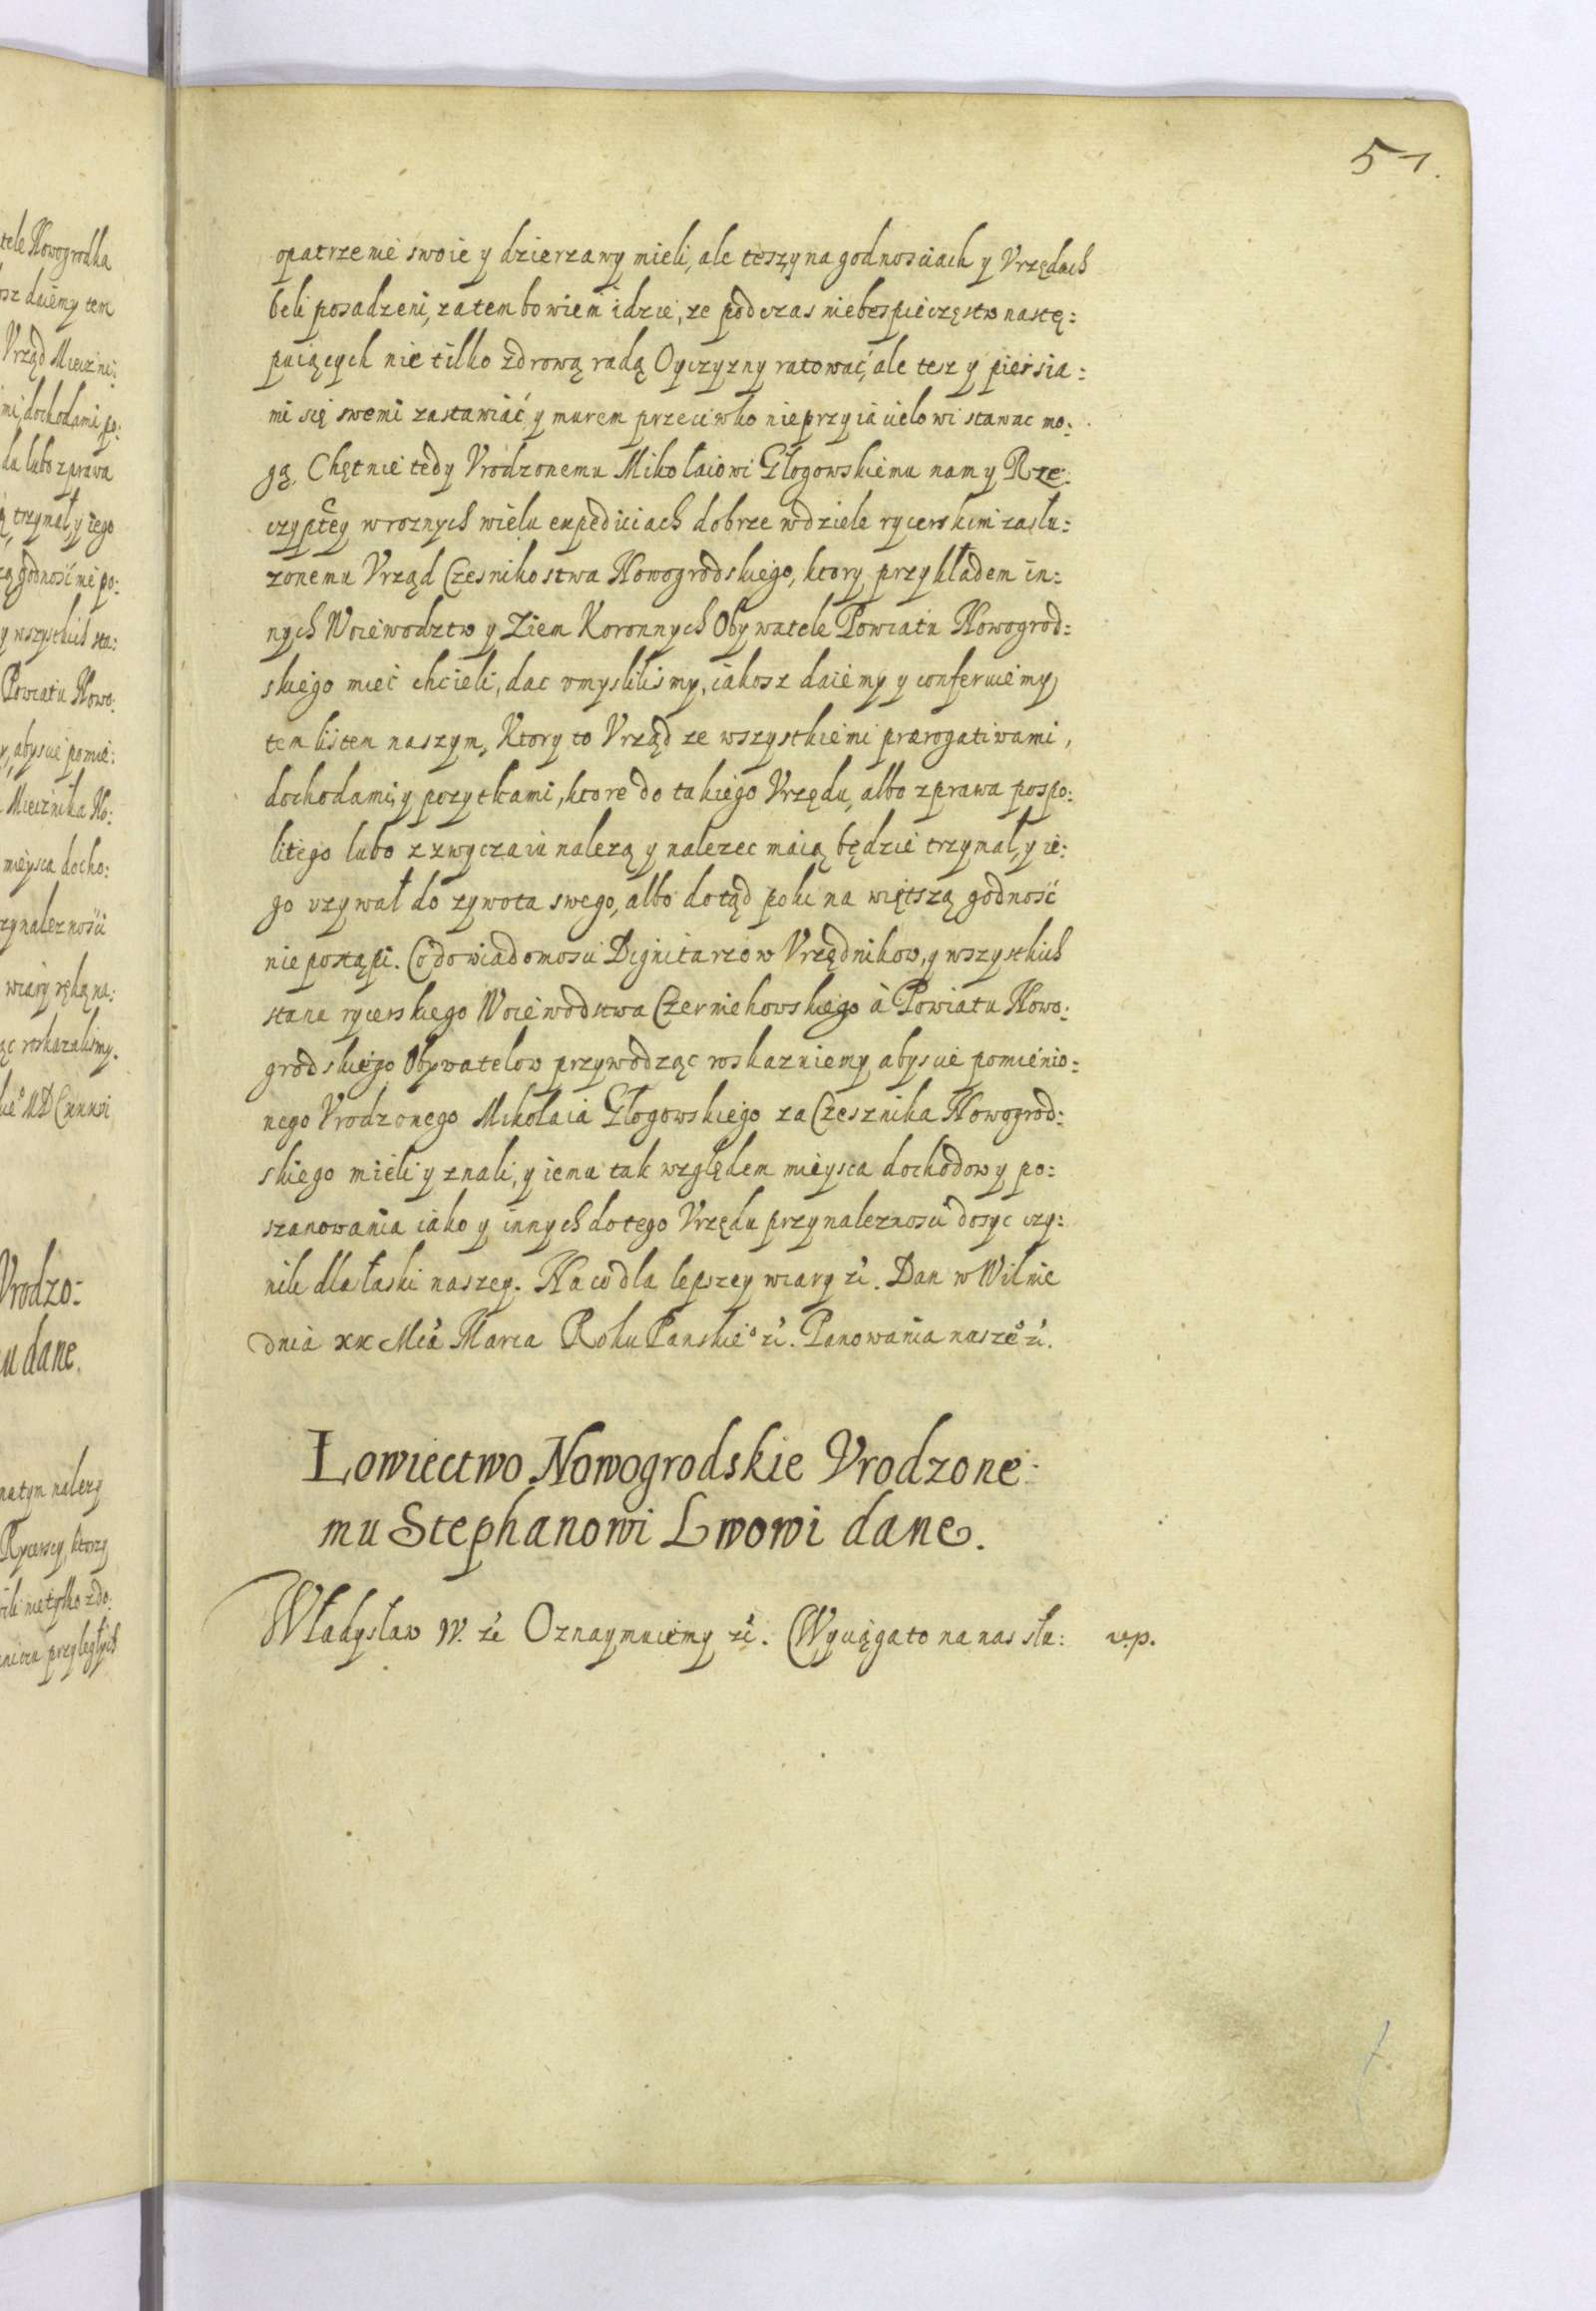 51.
opatrzenie swoie y dzierzawy mieli, ale teszy na godnosciach y Vrzędach
beli posadzeni, zatem bowiem idzie, ze podczas niebespieczęstw nastę:
puiących nie tilko zdrową radą Oyczyzny ratować, ale tez y piersia:
mi się swemi zastawiać y murem przeciwko nieprzyiacielowi stawac mo:
gą, Chętnie tedy Vrodzonemu Mikołaiowi Głogowskiemu nam y Rze:
czyptey w roznych wielu expediciach dobrze w dziele rycerskim zasłu:
zonemu Vrząd Czesnikostwa Nowogrodskiego, ktory przykładem in:
nych Woiewodztw y Ziem Koronnych Obywatele Powiatu Nowogrod:
skiego mieć chcieli, dac vmyslilismy, iakosz daiemy y conferuiemy
tem listem naszym, Ktory to Vrząd ze wszystkiemi prærogatiwami,
dochodami, y pozytkami, ktore do takiego Vrzędu, albo z prawa pospo:
litego lubo z zwyczaiu nalezą y nalezec maią będzie trzymał, y ie:
go vzywał do zywota swego, albo dotąd poki na większą godność
nie postąpi. Co do wiadomosci Dignitarzow Vrzędnikow, y wszystkich
stanu rycerskiego Woiewodstwa Czerniehowskiego à Powiatu Nowo:
grodskiego Obywatelow przywodząc roskazuiemy abyscie pomienio:
nego Vrodzonego Mikołaia Głogowskiego za Czesznika Nowogrod:
skiego mieli y znali, y iemu tak względem mieysca dochodow y po:
szanowania iako y innych do tego Vrzędu przynaleznosci dosyc czy:
nili dla łaski naszey. Na co dla lepszey wiary &c. Dan w Wilnie
dnia xx Mca Marca Roku Panskieo &c. Panowania naszeo &c.
Łowiectwo Nowogrodskie Vrodzone:
mu Stephanowi Lwowi dane.
Władysław IV. &c Oznaymuiemy &c. Wyciąga to na nas słu: vp.